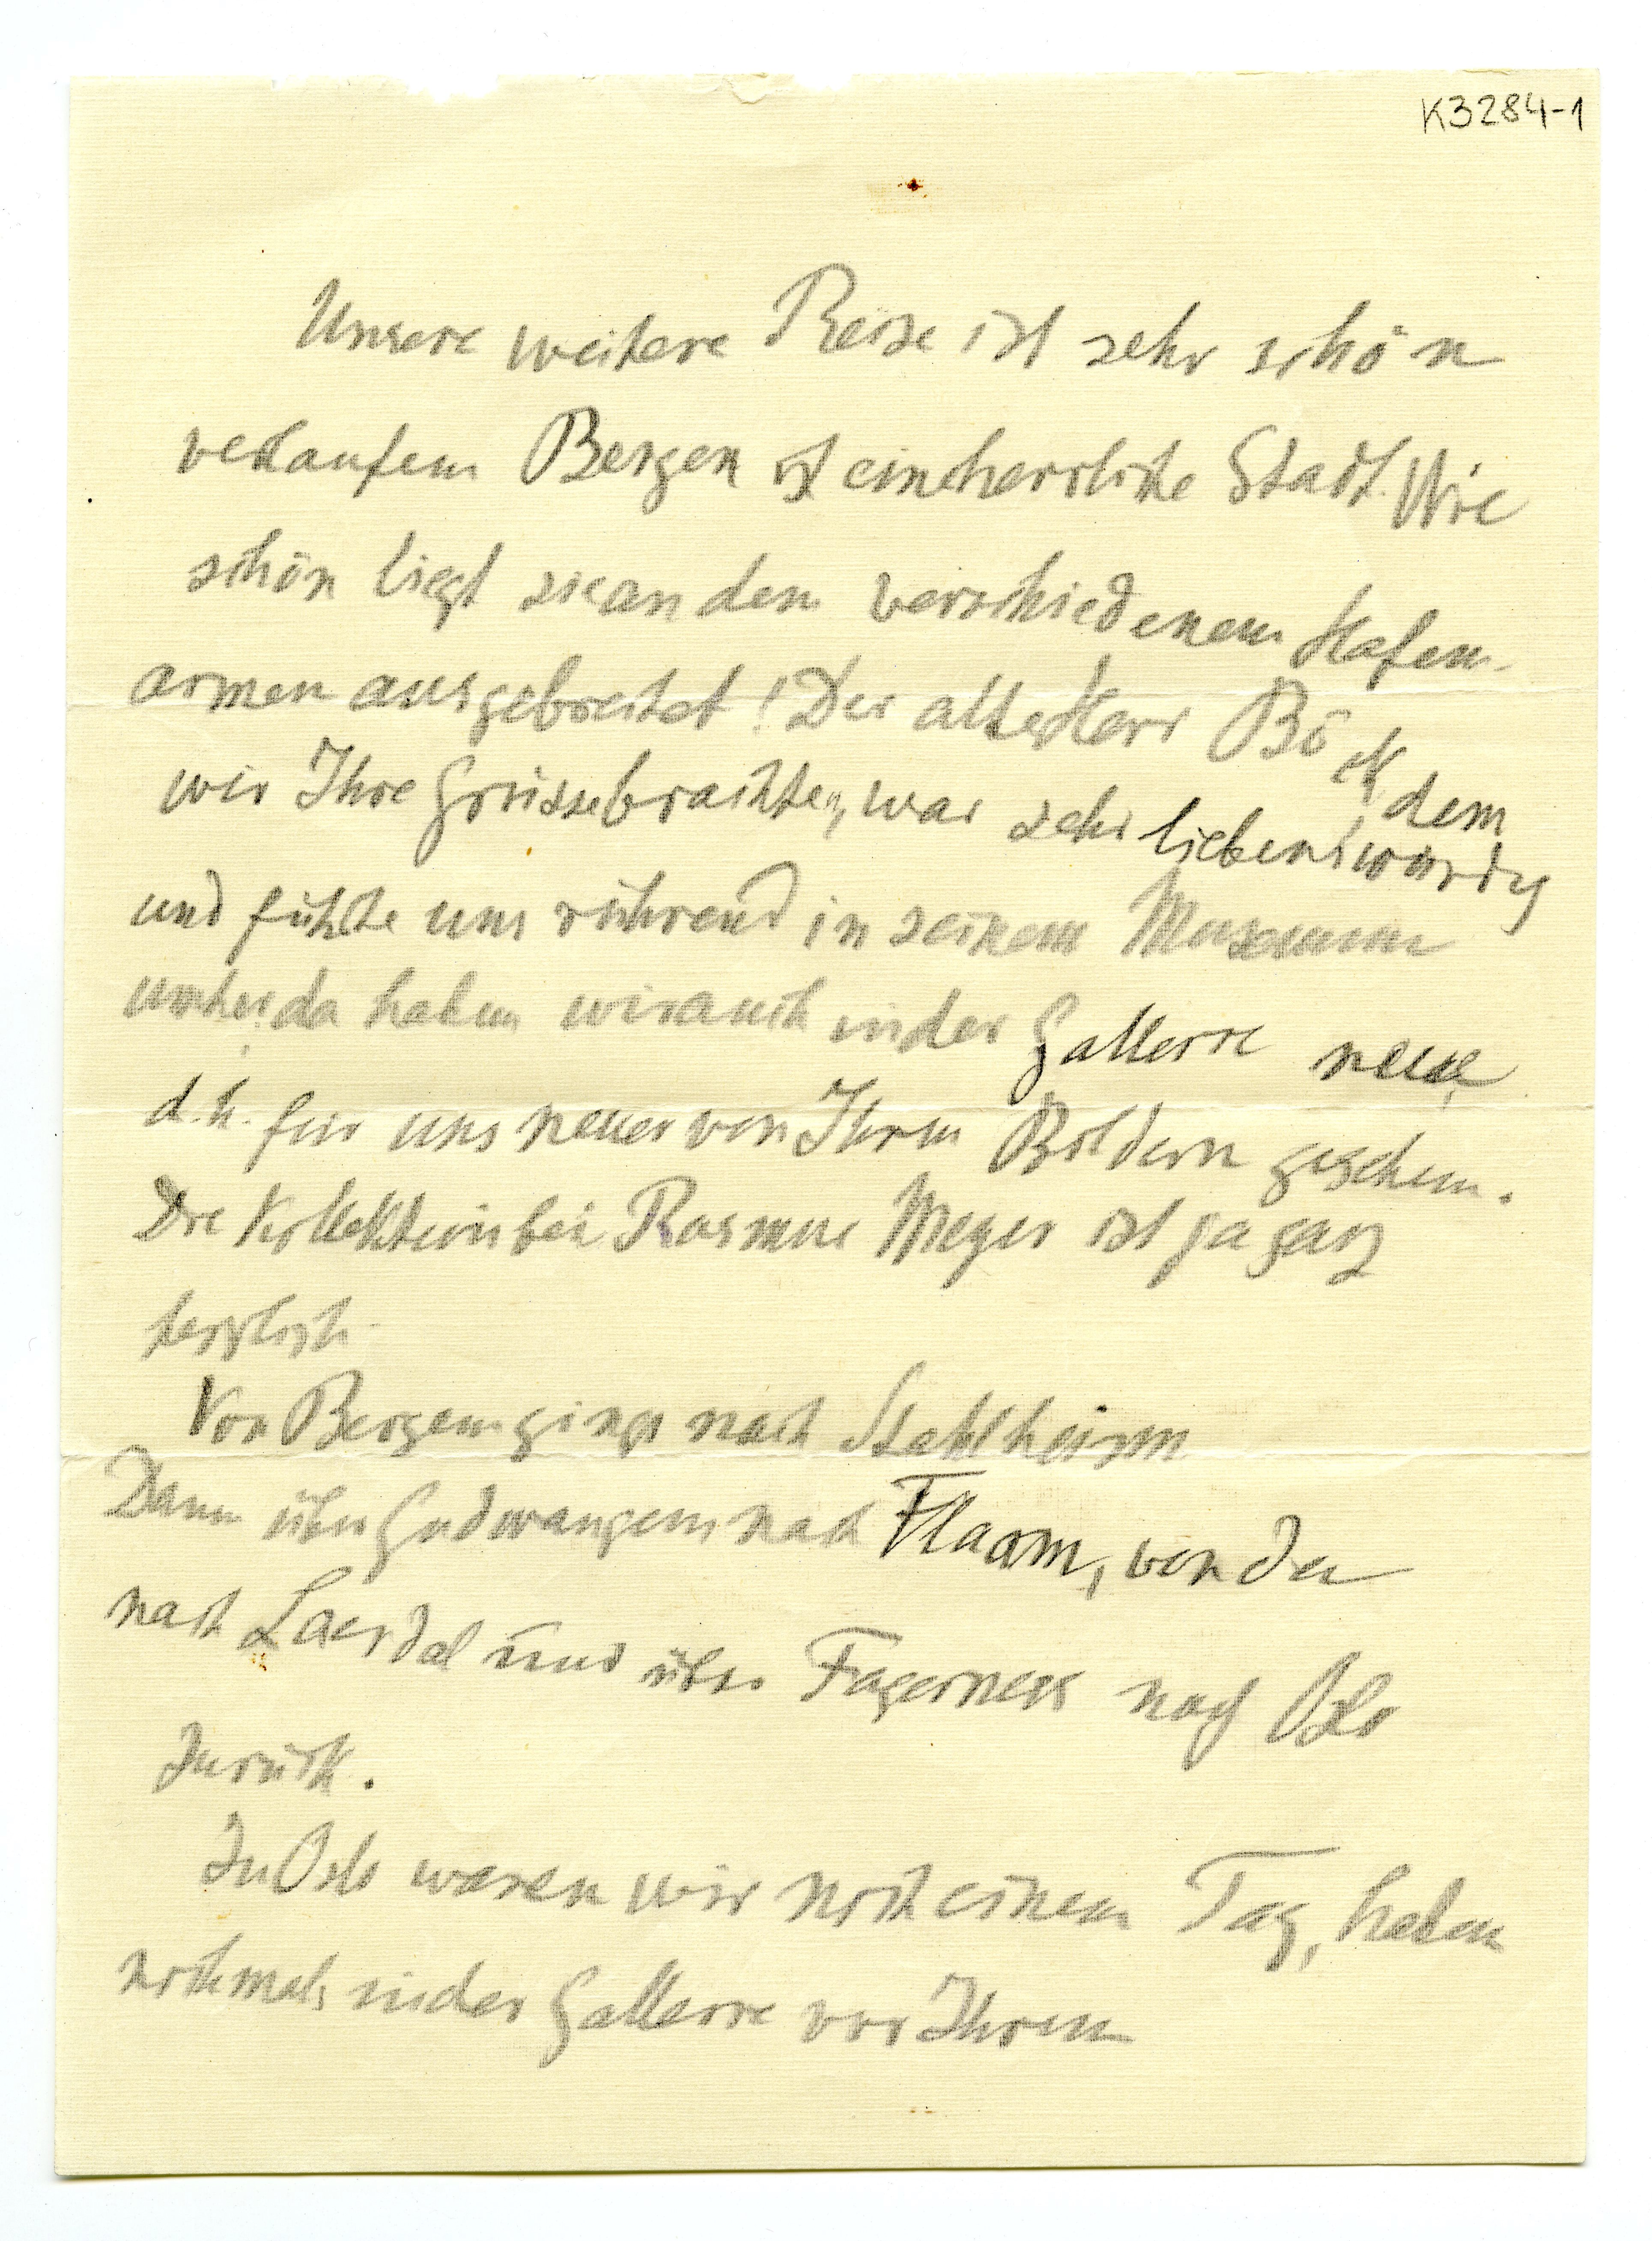 K3284-1
Unsere weitere Reise ist sehr schön
verlaufen Bergen ist eine herrliche Stadt. Wie
schön liegt sie an den verschiedenen Hafen-
armen ausgebreitet! Der alte Herr Böck dem
wir Ihre Grüsse brachten, war sehr liebenswürdig
und führte uns rührend in seinem Museum
umher da haben wir auch in der Gallerie neue
d. h. für uns neue von Ihren Bildern gesehen.
Die Kollektion bei Rasmus Meyer ist ja ganz
herrlich.
Von Bergen gings nach Stahlheim
Dann über Gudwangen nach Flaam, von da
nach Laerdal und über Fagerness nach Oslo
zurück.
In Oslo waren wir noch einen Tag, haben
nochmals in der Gallerie vor Ihren